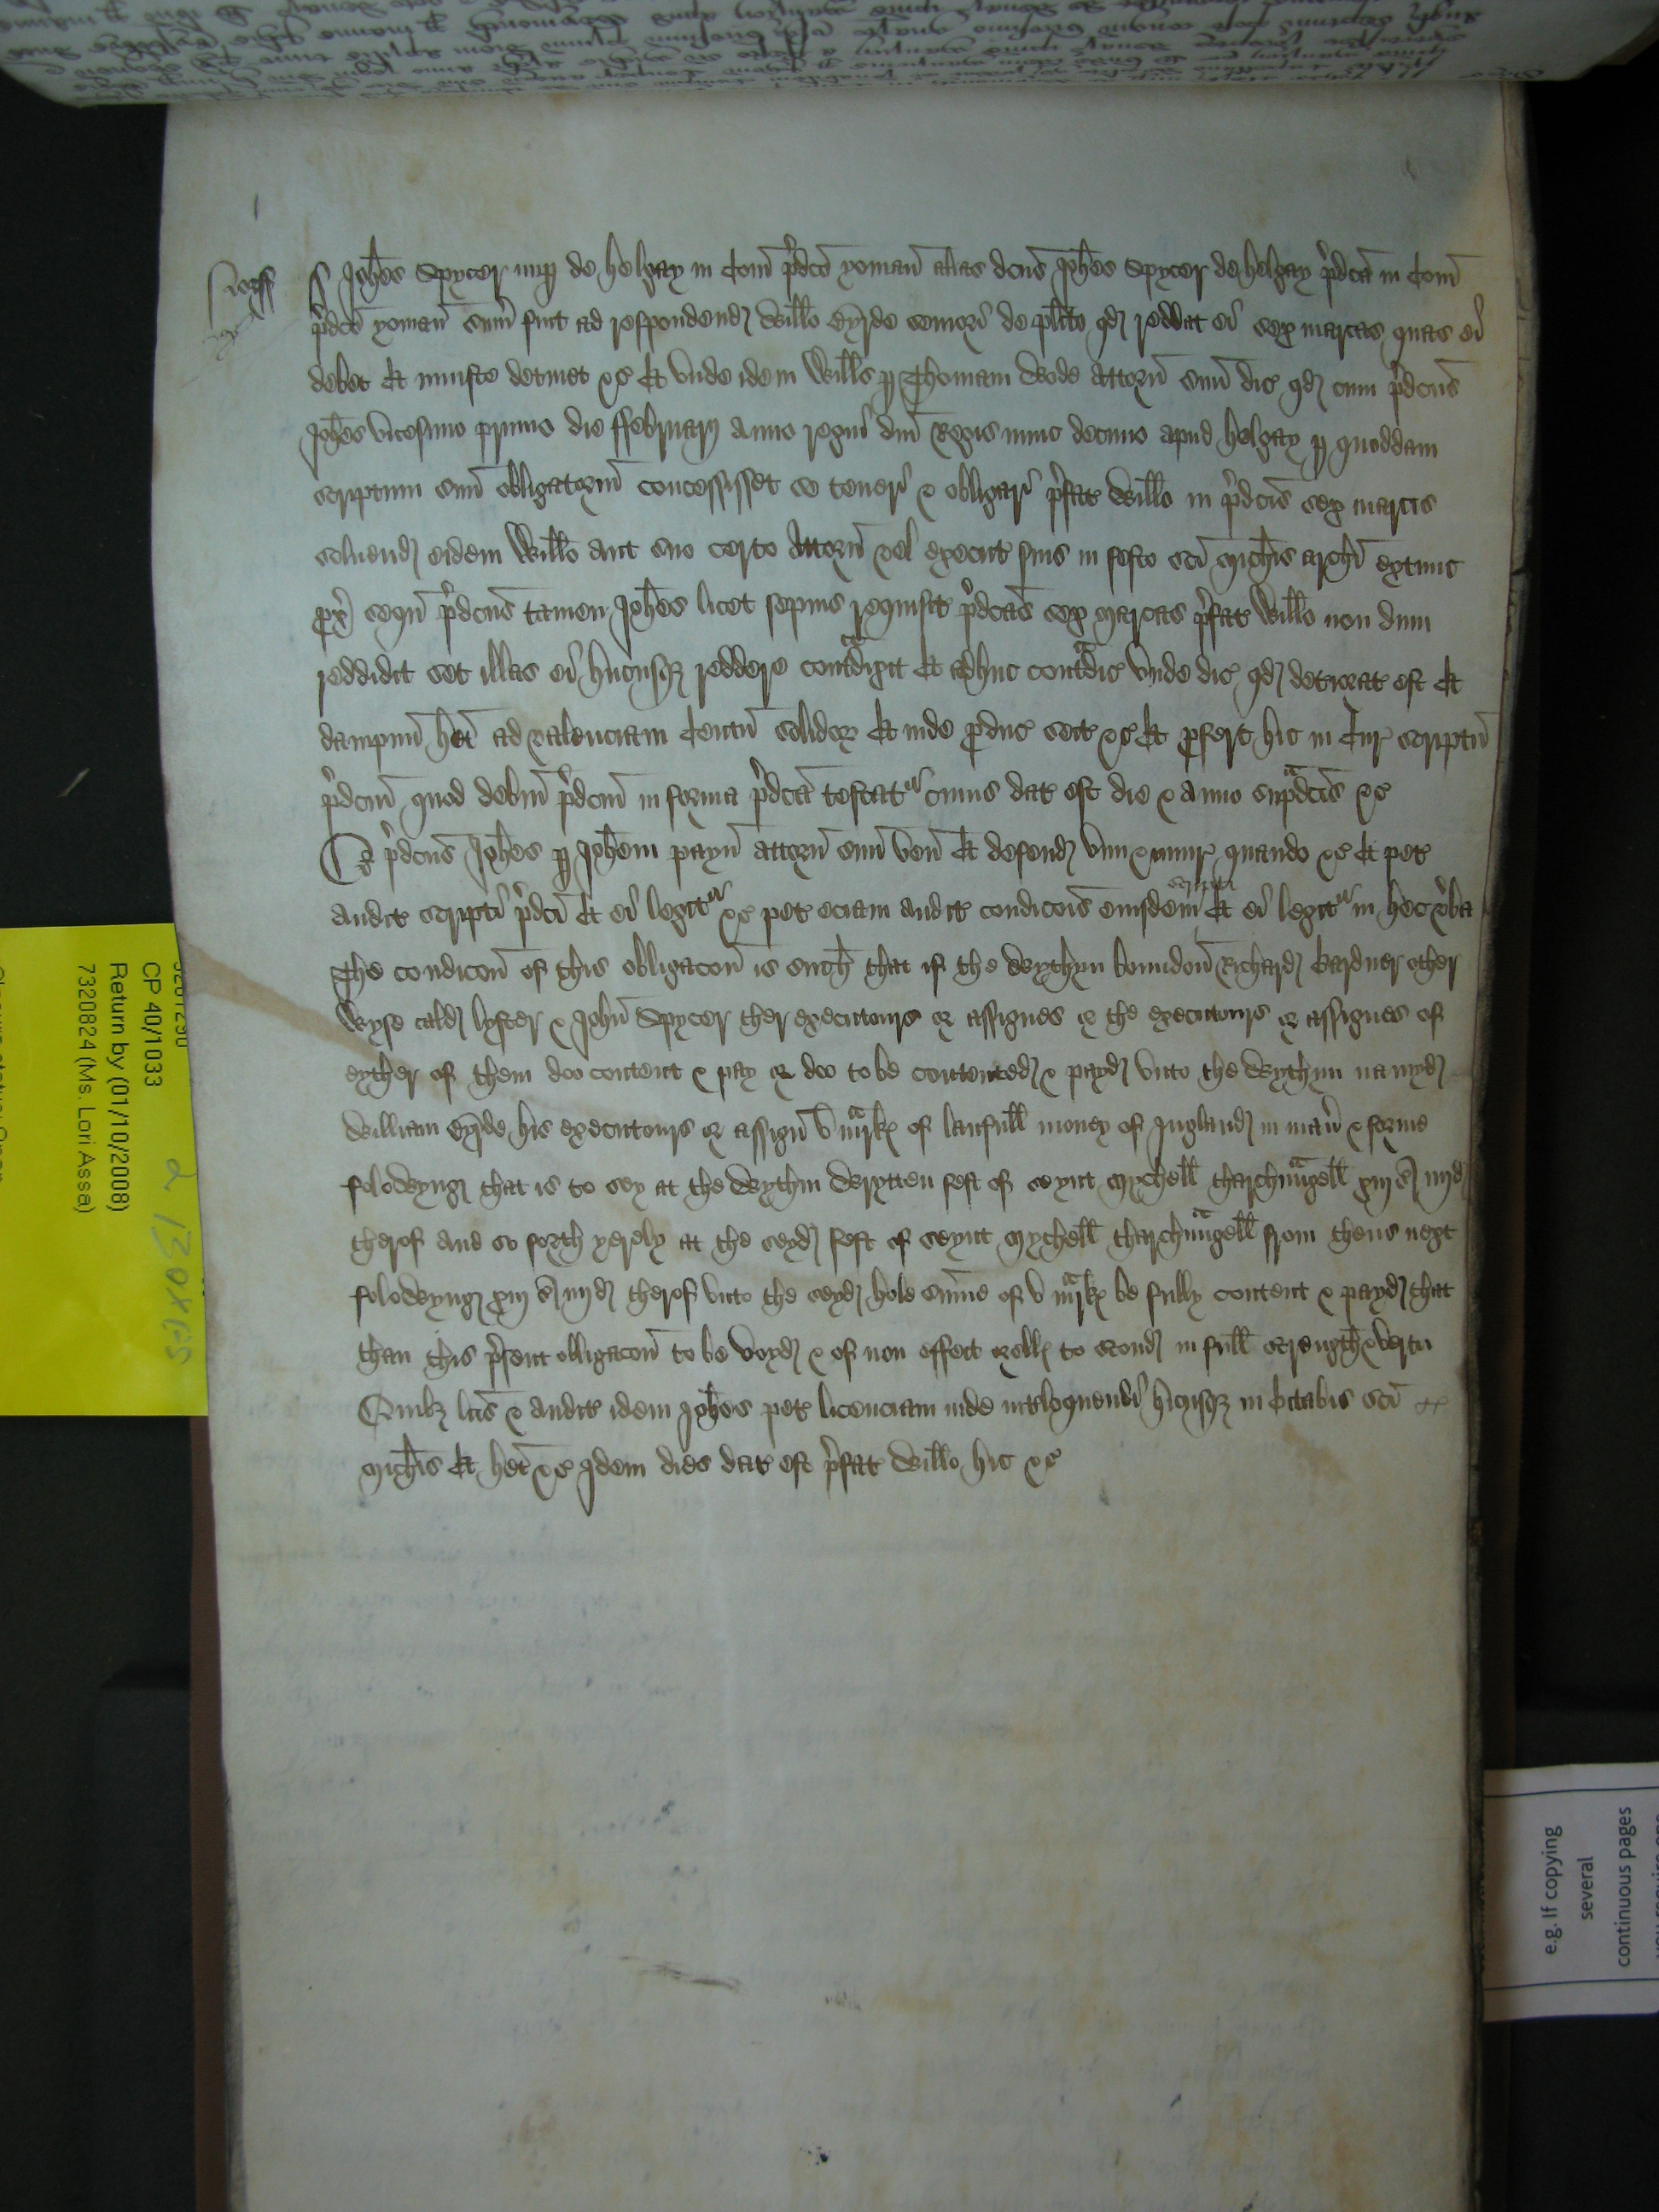 Norff
ss Joħes Spycer nup de helgay in Com̄ p̄dcō yoman̄ alias dcūs Joħes Spycer de helgay p̄dcā in Com̄
p̄dcō yoman̄ sum̄ fuit ad respondend Willo Eyrde seniori de plito qd reddat ei sex marcas quas ei
debet Et iniuste detinet &c Et unde idem Wills p Thomam Wode Attorn̄ suū dic qd cum p̄dcūs
Joħes vicesimo primo die ffebruarij Anno regni dnī Regis nunc decimo apud helgay p quoddam
scriptum suū obligatoriū concessisset se teneri & obligari p̄fat Willo in p̄dcīs sex marcis
soluend eidem Willo aut suo certo Attorn̄ vel execut suis in festo scī Micħis arcħi extunc
px̄ sequn̄ p̄dcūs tamen Joħes licet sepius requisit p̄dcās sex Marcas p̄fat Willo non dum
reddidit set illas ei hucusq reddere contadixit Et adhuc contadic Unde dic qd deteriorat est Et
dampnū het ad valenciam Centū solidor Et inde produc sect &c Et profert hic in Cur scriptū
p̄dcm̄ quod debitū p̄dcm̄ in forma p̄dcā testatur cuius dat est die & Anno supadcīs &c
Et p̄dcūs Joħes p Joħem payn̄ attorn̄ suū ven̄ Et defend vim & iniur quando &c Et pet
audit scripti p̄dcī Et ei legitur &c pet eciam audit condicois eiusdem scripti Et ei legitur in hec vba
The condicon̄ of this obligacon̄ is sucħ that if the Wythyn boundon̄ Richard Cardner other
Wyse cald lyster & John̄ Spycer ther executours or assignes or the executours or assignes of
eyther of them doo content & pay or doo to be contented & payd vnto the Wythyn namyd
William Eyrde his executours or assign̄ v mark of laufull money of Ingland in man̄ & forme
folowyng that is to sey at the Wythin Wrytten fest of seynt Mychell tharchangell xiij s iiij d
therof And so forth yerely at the seyd fest of seynt Mychell tharchangell from thens next
folowyng xiij s iiij d therof vnto the seyd hole sum̄e of v mark be fully content & payd that
than this p̄sent obligacon̄ to be voyd & of non effect or ell to stond in full strengtħ & vertu
Quib lcīs & audit idem Joħes pet licenciam inde int̄loquendi hucusq in Octabis scī
Micħis Et het &c Idem dies dat est p̄fat Willo hic &c
CP 40/1033
Return by (01/10/2008)
7320824 (Ms. Lori Assa)
2 Boxes
e.g. If copying
several
continuous pages